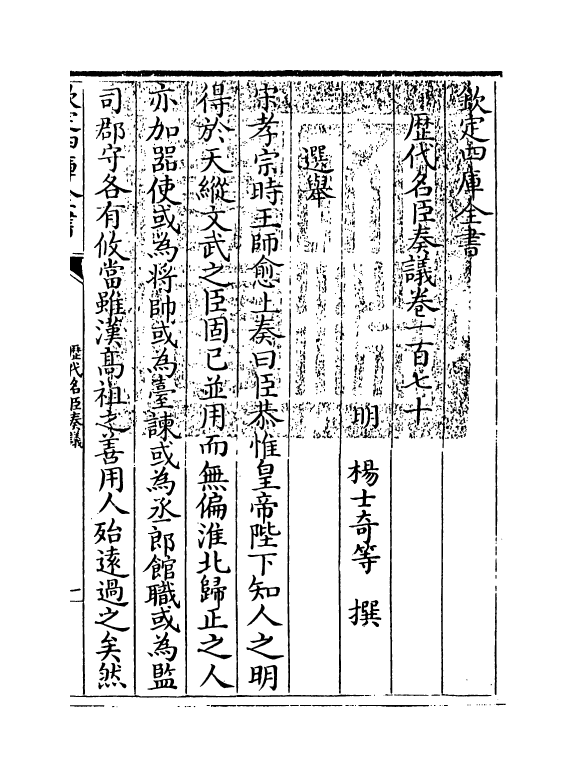 欽定四庫全書
歷代名臣奏議卷一百七十
明 楊士奇等 撰
選舉
宋孝宗時王師愈上奏曰臣恭惟皇帝陛下知人之明
得於天縱文武之臣固已並用而無偏淮北歸正之人
亦加器使或為將帥或為臺諫或為丞郎館職或為監
司郡守各有攸當雖漢髙祖之善用人殆逺過之矣然
欽定四庫全書
歷代名臣奏議
一